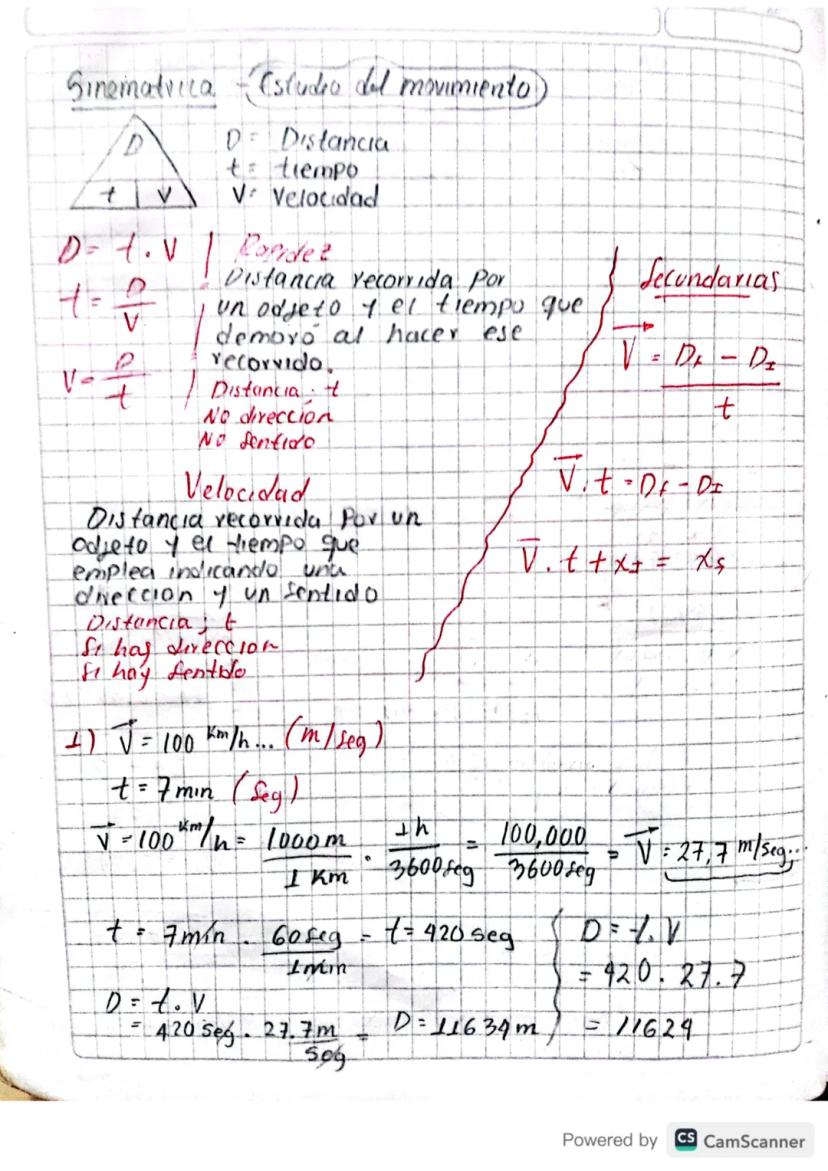 Sinematica - (Estudio del movimiento)
D
t | V
D = Distancia
t = tiempo
V = Velocidad
D = t . V
t = D / V
V = D / t
Rapidez
Distancia recorrida Por
un odjeto y el tiempo que
demoró al hacer ese
recorrido.
Distancia ; t
No dirección
No Sentido
Velocidad
Distancia recorrida Por un
odjeto y el tiempo que
emplea indicando una
direccion y un Sentido
Distancia ; t
Si hay direccion
Si hay Sentido
Secundarias
V = Df - DI / t
V . t = Df - DI
V . t + xI = xf
1) V = 100 Km/h... (m/seg)
t = 7 min (Seg)
V = 100 Km/h = 1000 m / 1 Km . 1h / 3600 seg = 100,000 / 3600 seg = V = 27,7 m/seg;
t = 7 min . 60 seg / 1 min = t = 420 seg
D = t . V
= 420 seg . 27.7 m / seg = D = 11634 m
D = t . V
= 420 . 27.7
= 11624
Powered by CS CamScanner